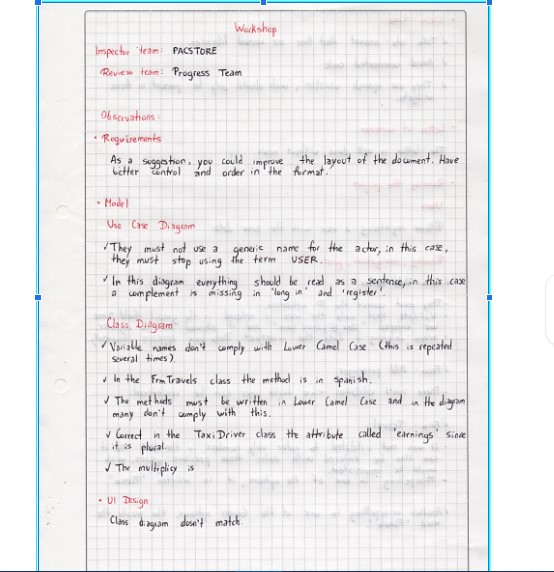 Workshop
Inspector team: PACSTORE
Review team: Progress Team
Observations:
• Requirements
As a suggestion, you could improve the layout of the document. Have
better control and order in the format.
• Model
Use Case Diagram
✓ They must not use a generic name for the actor, in this case,
they must stop using the term USER.
✓ In this diagram everything should be read as a sentence, in this case
a complement is missing in "long in" and "register".
Class Diagram
✓ Variable names don't comply with Lower Camel Case (this is repeated
several times)
✓ In the FrmTravels class the method is in spanish.
✓ The methods must be written in Lower Camel Case and in the diagram
many don't comply with this.
✓ Correct in the TaxiDriver class the attribute called "earnings" since
it is plural.
✓ The multiplicy is
• UI Design
Class diagram doesn't match.